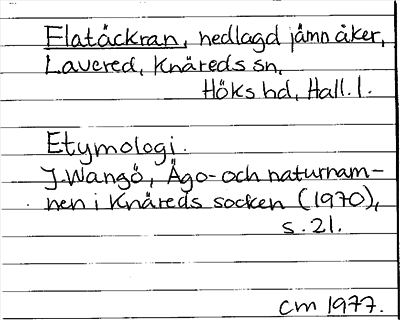 Flatäckran, nedlagd jämn åker,
Lavered, Knäreds sn,
Höks hd, Hall. l.
Etymologi.
J. Wangö, Ägo- och naturnam-
nen i Knäreds socken (1970),
s. 21.
CM 1977.